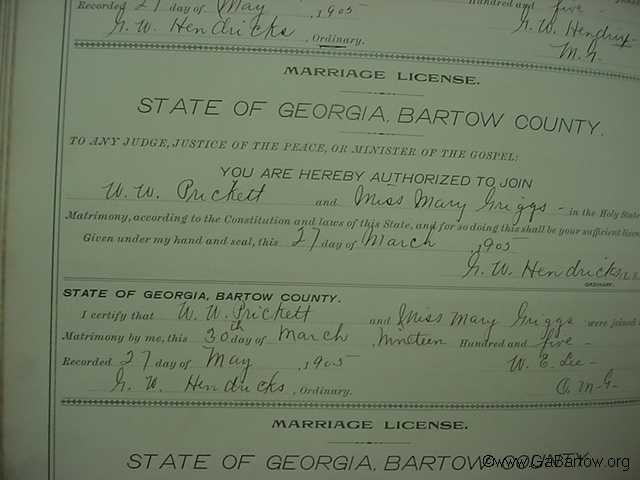 Recorded 27 day of May , 1905 Hundred and five -
G. W. Hendricks , Ordinary. G. W. Hendrix -
M. G.
MARRIAGE LICENSE.
STATE OF GEORGIA, BARTOW COUNTY.
TO ANY JUDGE, JUSTICE OF THE PEACE, OR MINISTER OF THE GOSPEL:
YOU ARE HEREBY AUTHORIZED TO JOIN
W. W. Prickett and Miss Mary Griggs - in the Holy State
Matrimony, according to the Constitution and laws of this State, and for so doing this shall be your sufficient licen
Given under my hand and seal, this 27 day of March , 1905
G. W. Hendricks L. S.
ORDINARY.
STATE OF GEORGIA, BARTOW COUNTY.
I certify that W. W. Prickett and Miss Mary Griggs - were joined
Matrimony by me, this 30th day of March Nineteen Hundred and five -
Recorded 27 day of May , 1905 W. E. Lee -
G. W. Hendricks , Ordinary. O. M. G -
MARRIAGE LICENSE.
STATE OF GEORGIA, BARTOW COUNTY
©www.GaBartow.org